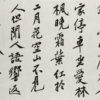 家停車坐愛林
楓晚霜葉紅於
二月花空山不見
人但聞人語響返